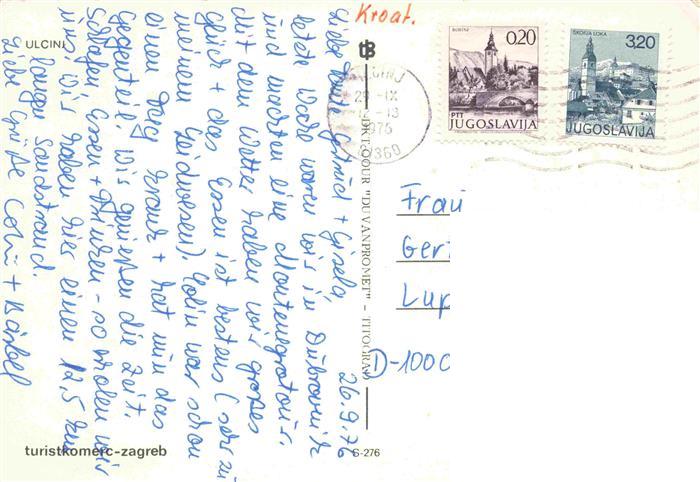 Kroat.
ULCINJ
BOHINJ
0,20
PTT
JUGOSLAVIJA
ŠKOFJA LOKA
3,20
JUGOSLAVIJA
ULCINJ
1976
26.9.76
Liebe Gertrud + Gisela,
letzte Woche waren wir in Dubrovnik
und machten eine Montenegrotour.
Mit dem Wetter haben wir großes
Glück + das Essen ist bestens (sehr zu
meinem Leidwesen). Colin war schon
einen Tag krank + hat nun das
Gegenteil. Wir genießen die Zeit.
Schlafen Essen + Trinken - so erholen wir
uns, wir haben hier einen 12,5 km
langen Sandstrand.
Liebe Grüße Colin + Bärbel
"DUVANPROMET" - TITOGRAD
Frau
Ger
Lup
D-1000
turistkomerc-zagreb
S-276